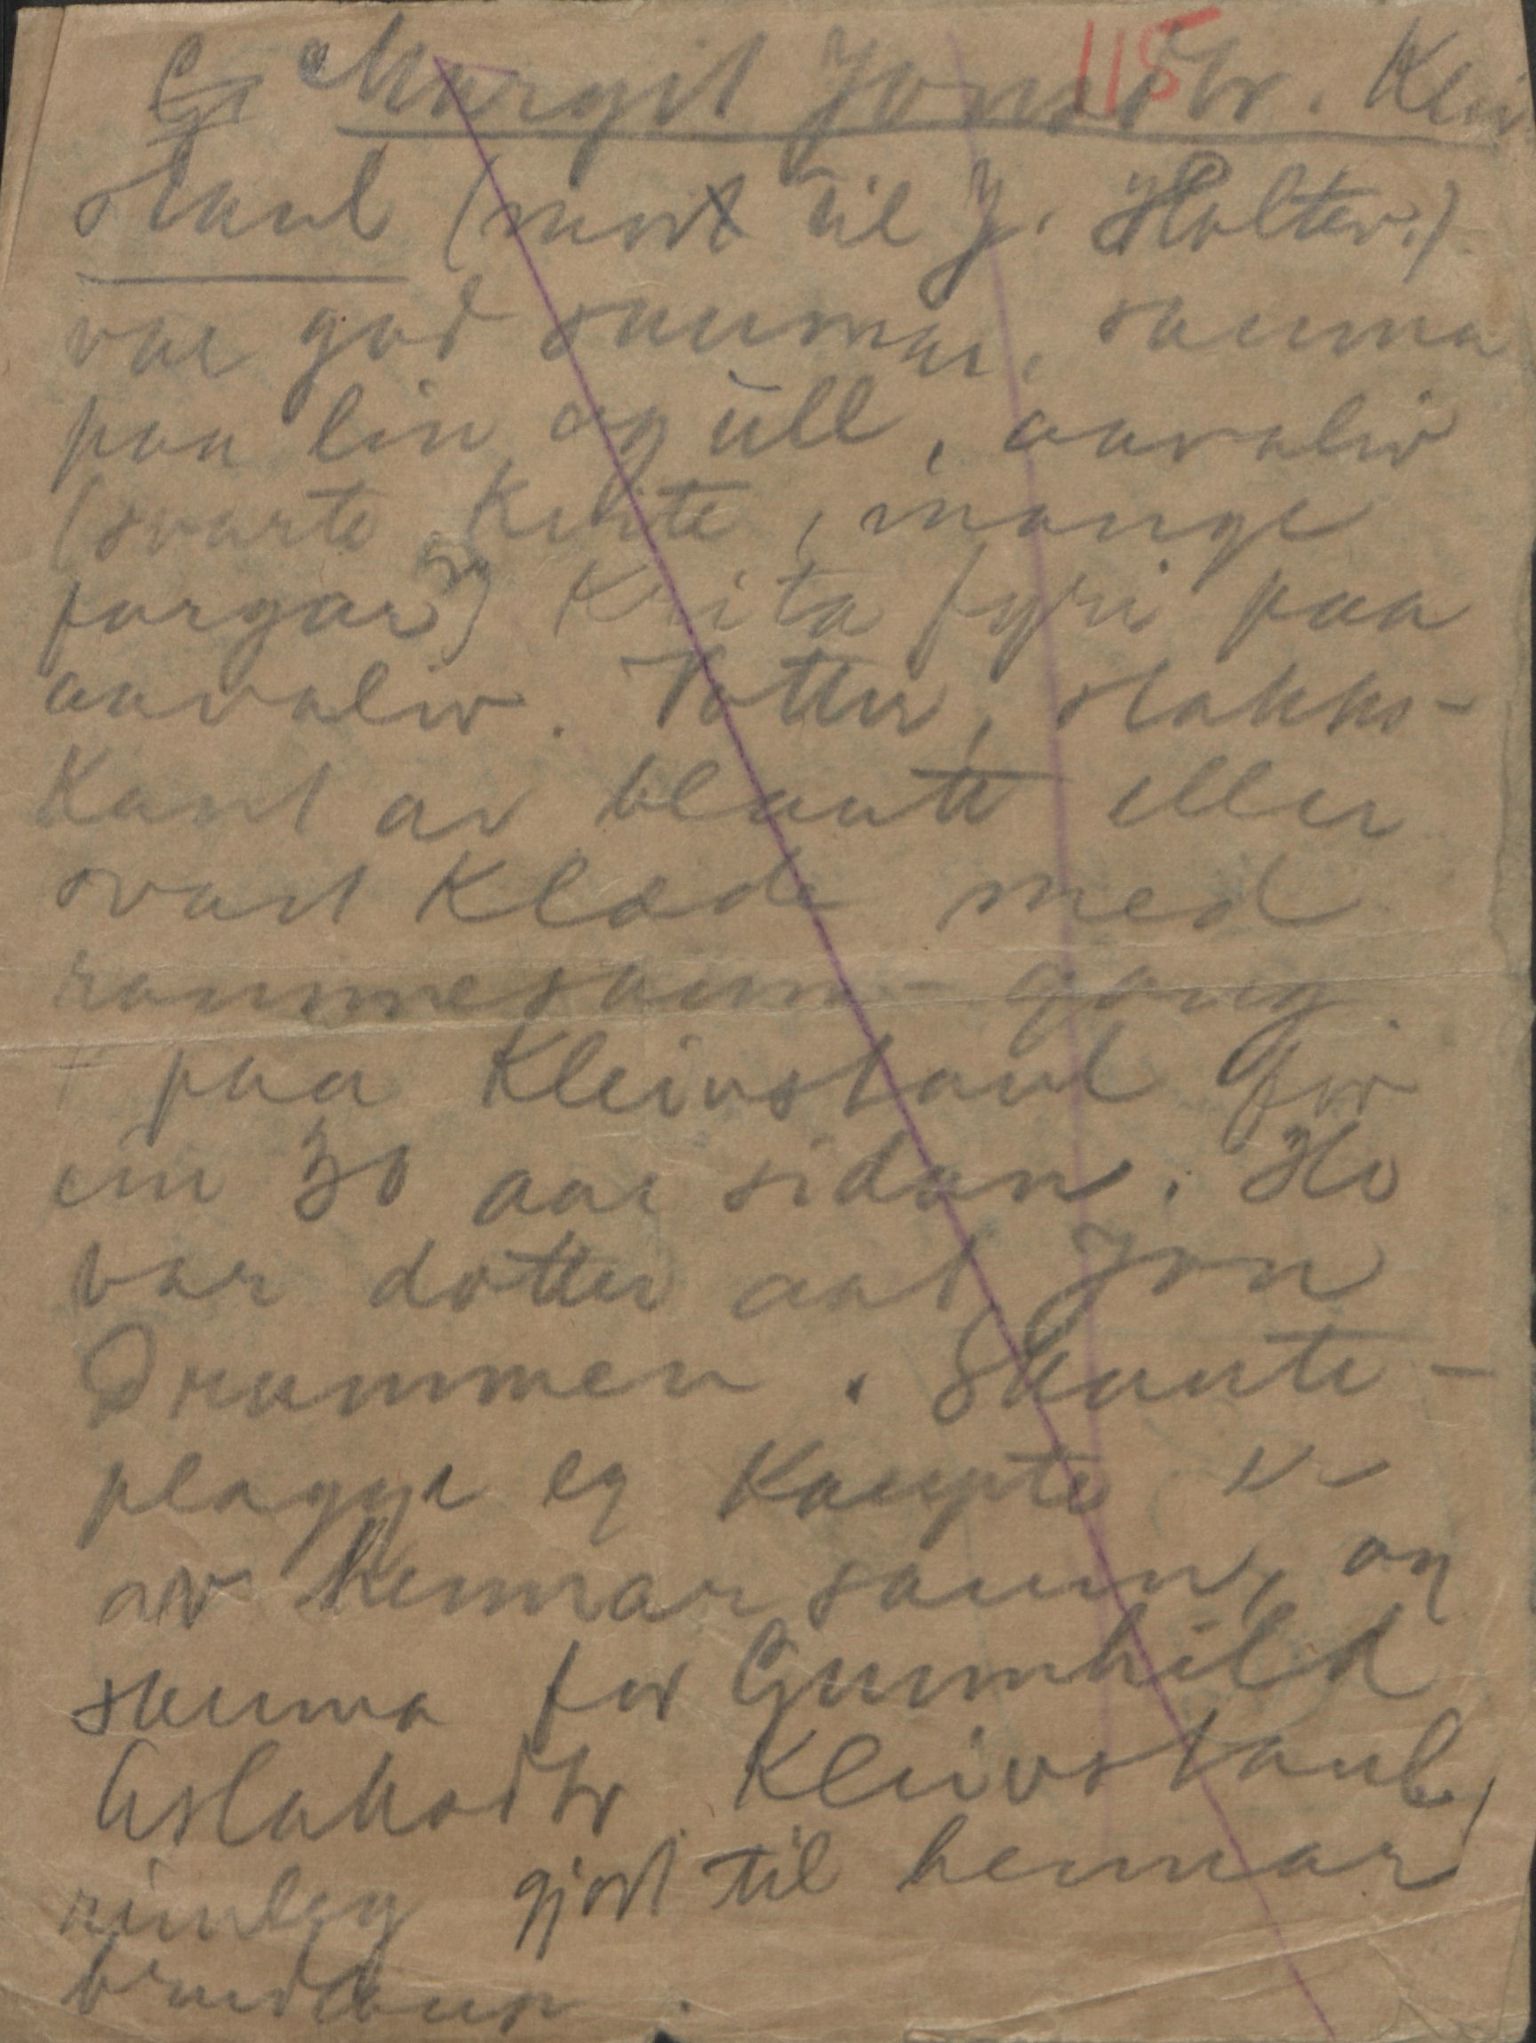 115
Margit Jonsdtr. Kleiv
staul (mor til J. Holter.)
var god saumar, sauma
paa lin og ull, aavaliv
(svarte kvite, mange
fargar) Krita fyri paa
aavaliv. Votter, stakks-
kant av blautt eller
svart Klæde med
rannmesaum- gang
+ paa Kleivstaul for
ein 30 aar sidan. Ho
var dotter aat Jon
Drammen. Skaute-
plagge eg kaupte er
av hennar saum, og
sauma for Gunnhild
Aslaksdtr Kleivstaul,
rimleg gjort til hennar
brudlaup.